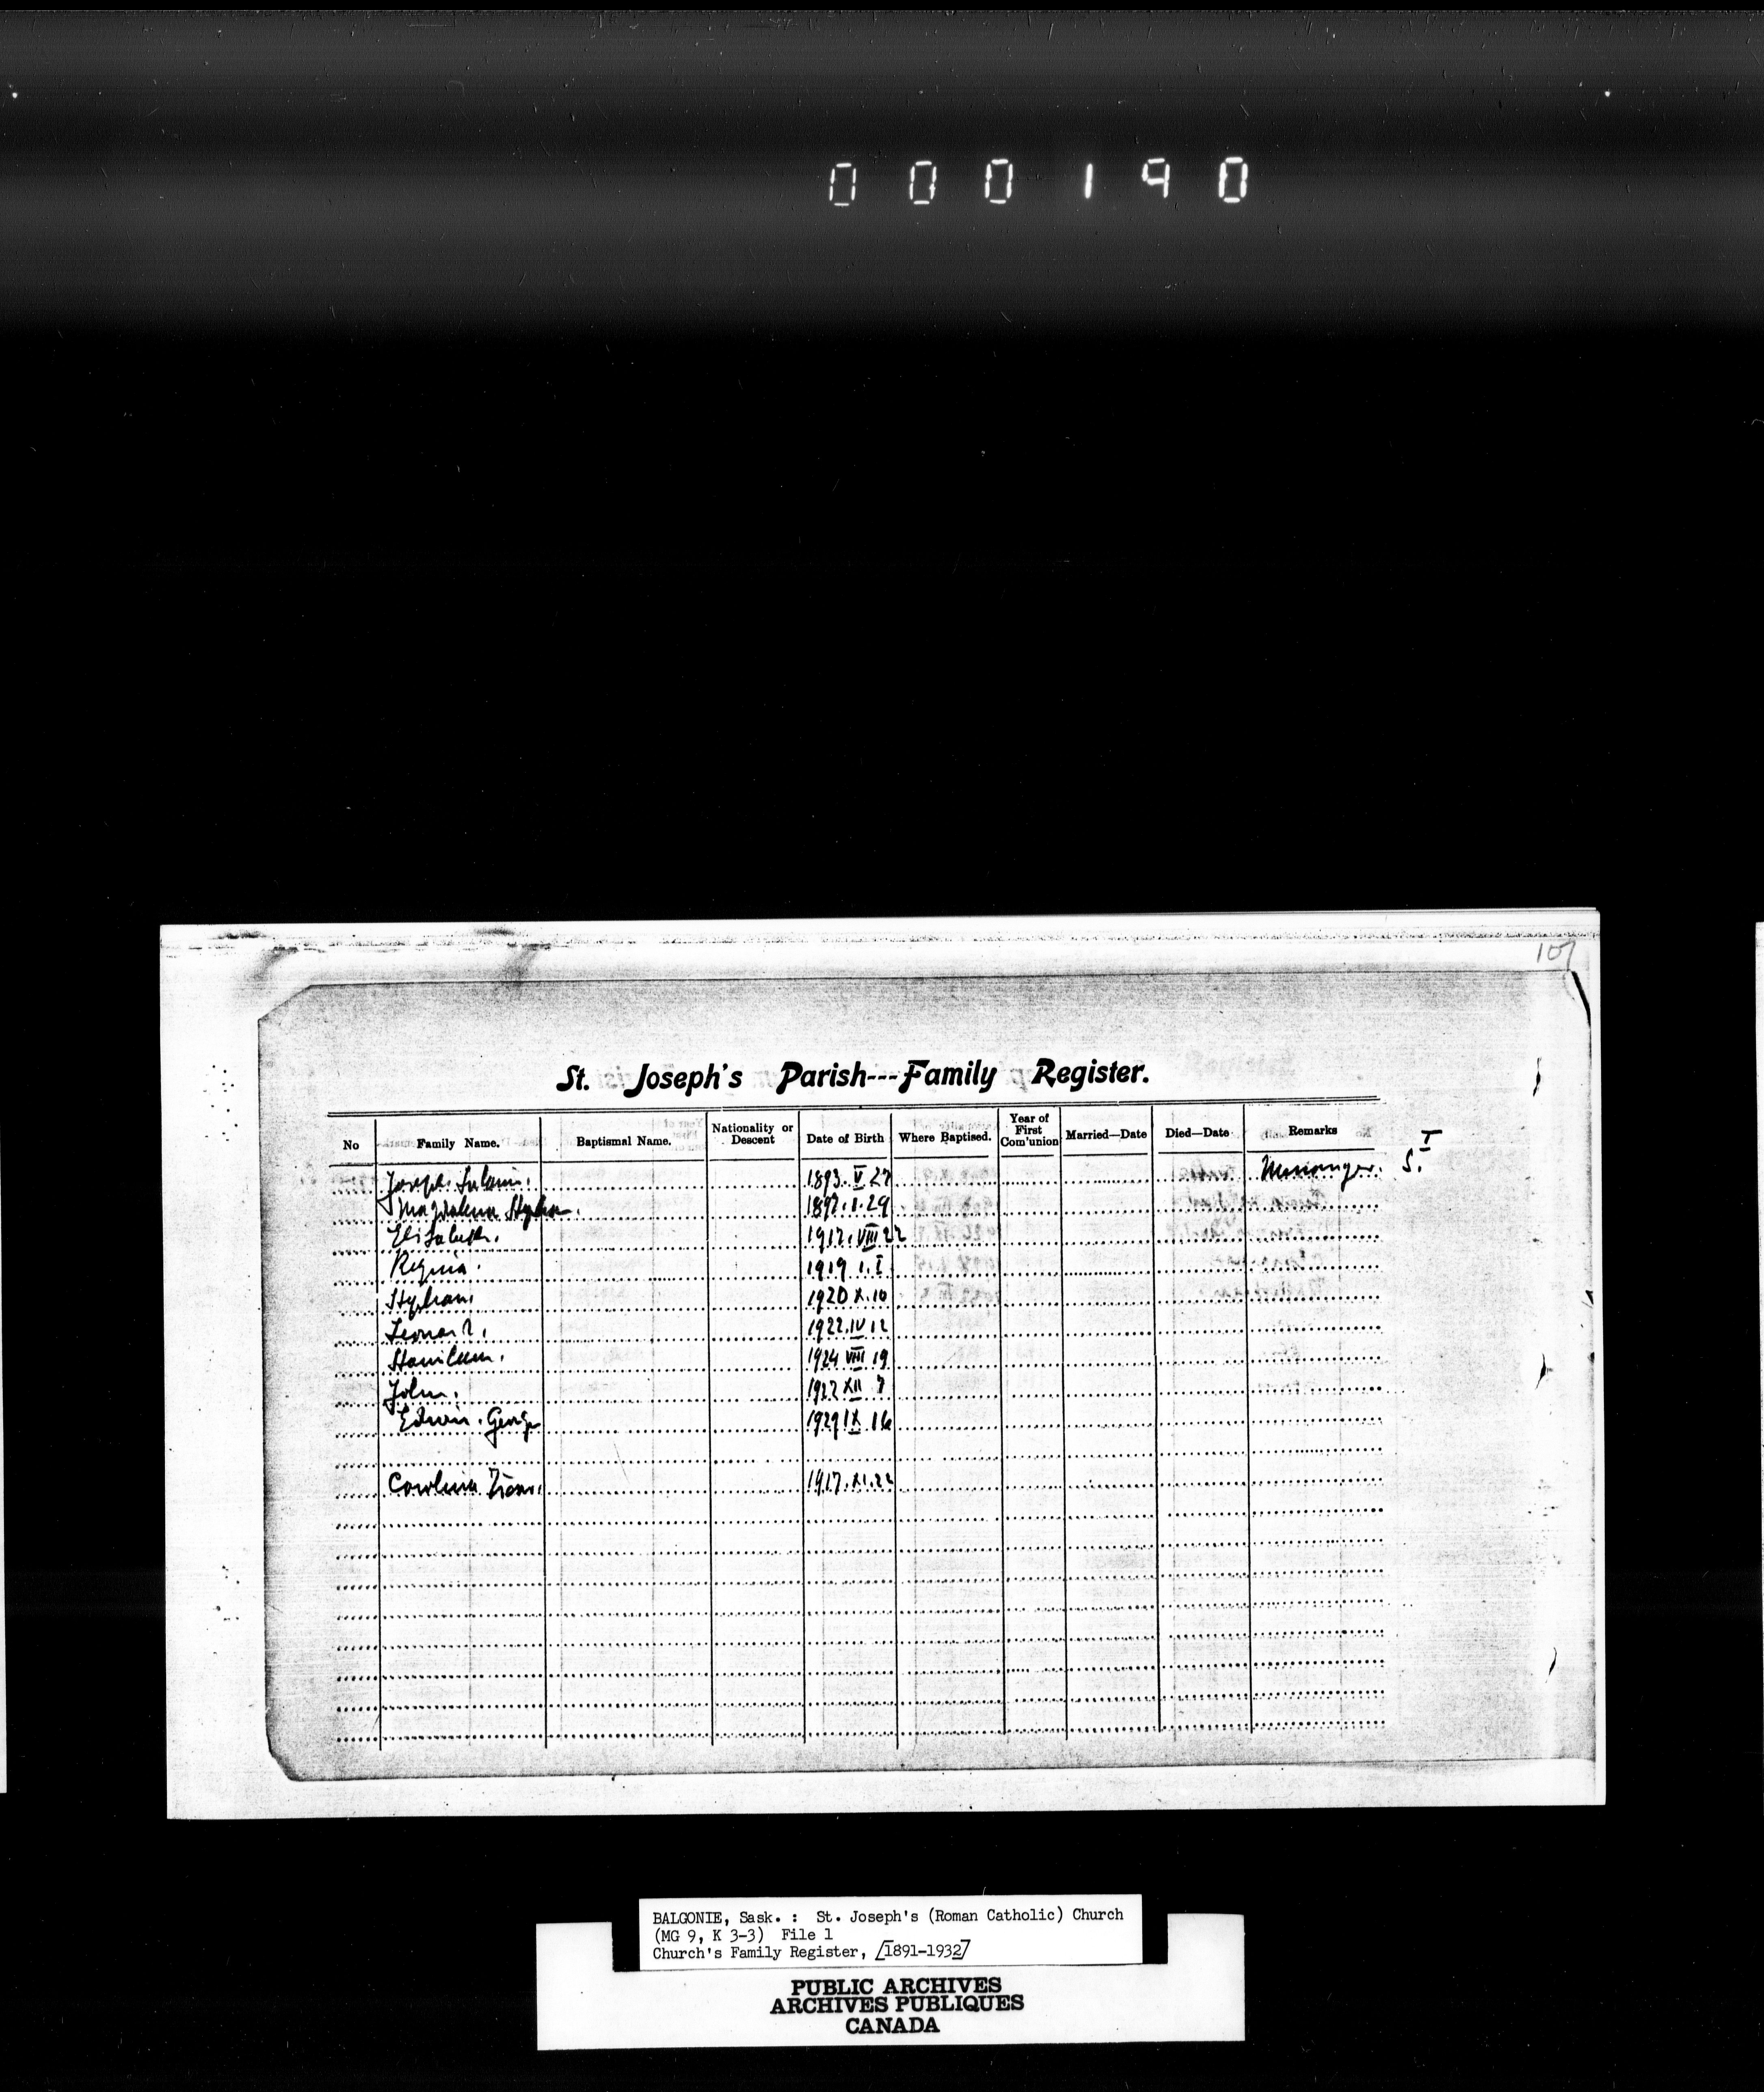 000190
107
St. Joseph's Parish---Family Register.
No Family Name. Baptismal Name. Nationality or Descent Date of Birth Where Baptised. Year of First Com'union Married—Date Died—Date Remarks
Joseph 1893. V 27 S. I
Magdalena 1897. I. 29
Elisabeth. 1917. VIII 22
Regina. 1919 I. I
Stephan 1920 X. 10
Leonard. 1922 IV 12
1924 VIII 19
John. 1927 XII 7
Edwin. George 1929 IX 16
Carolina 1917. XI. 22
BALGONIE, Sask. : St. Joseph's (Roman Catholic) Church
(MG 9, K 3-3) File 1
Church's Family Register, [1891-1932]
PUBLIC ARCHIVES
ARCHIVES PUBLIQUES
CANADA